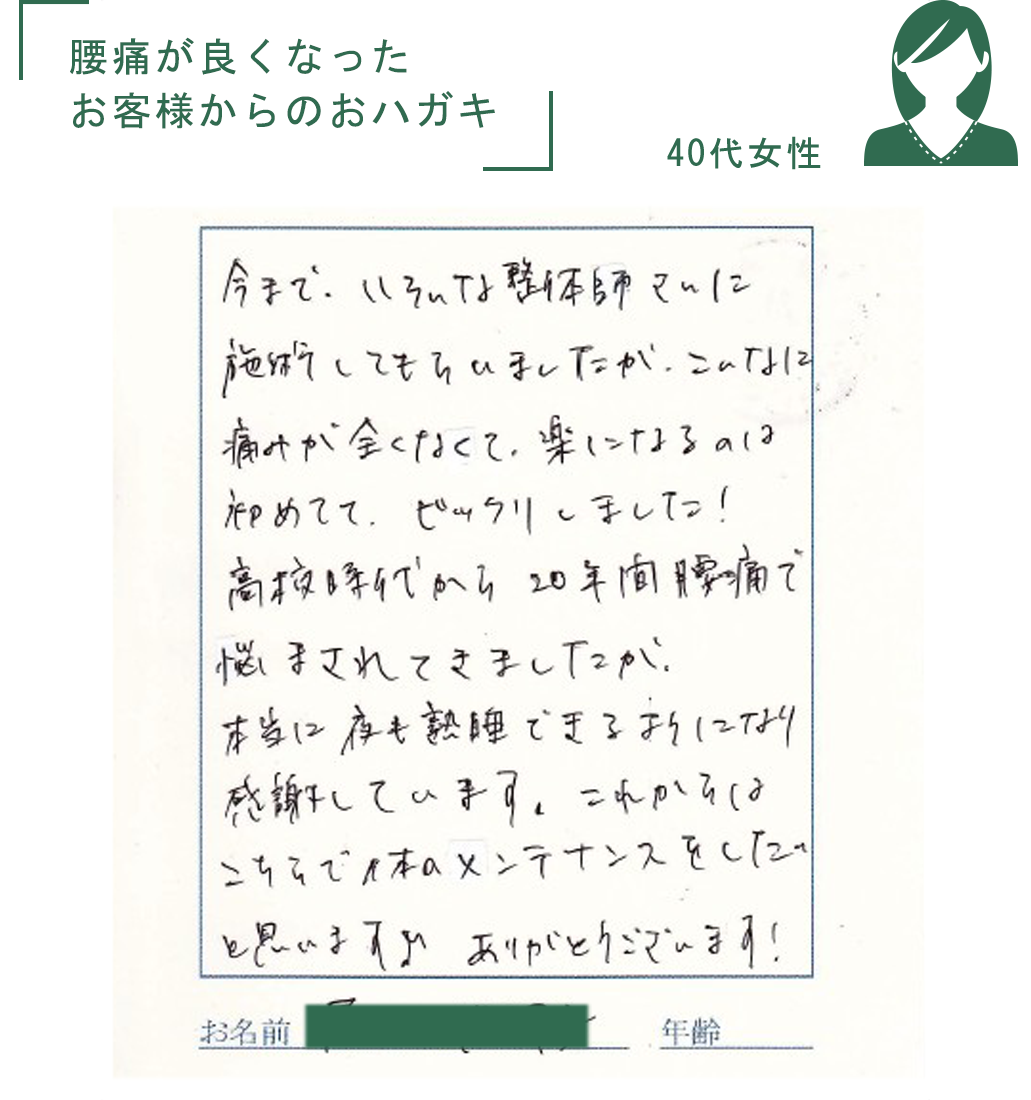 腰痛が良くなった
お客様からのおハガキ
40代女性
今まで、いろんな整体師さんに
施術してもらいましたが、こんなに
痛みが全くなくて、楽になるのは
初めてで、ビックリしました！
高校時代から20年間腰痛で
悩まされてきましたが、
本当に夜も熟睡できるようになり
感謝しています。これからは
こちらで体のメンテナンスをしたい
と思います♪ ありがとうございます！
お名前
年齢